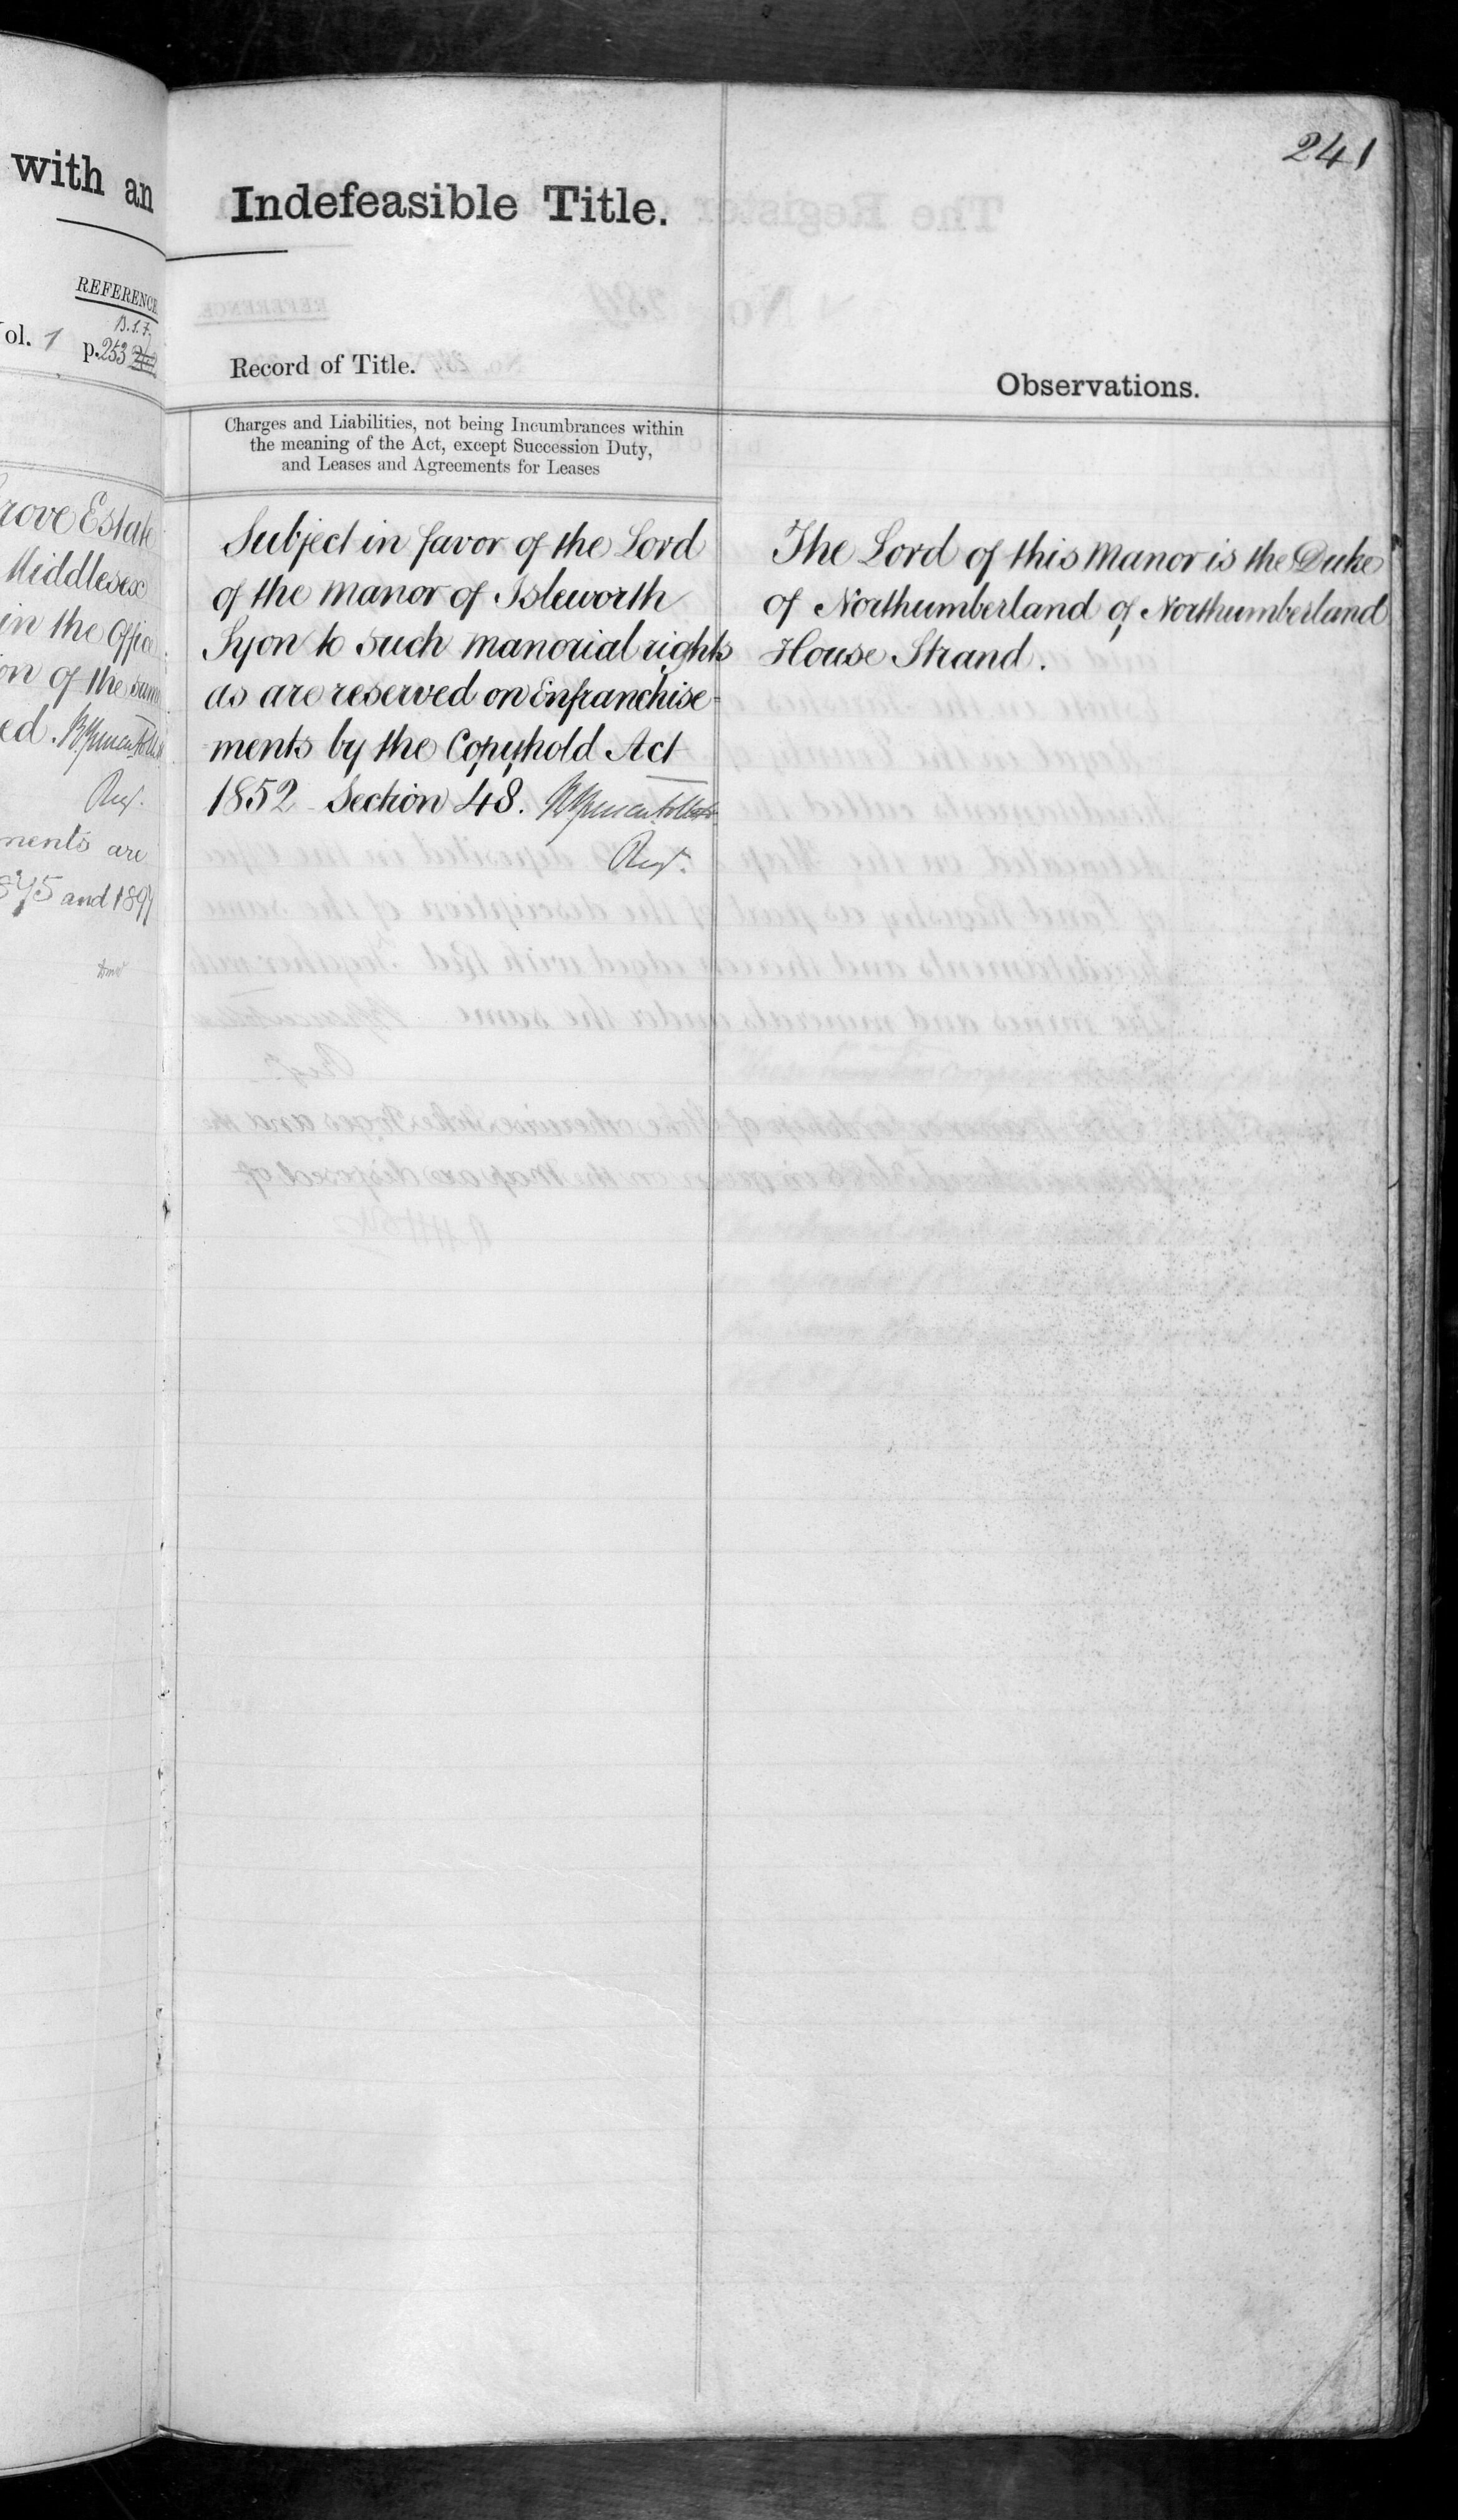 with an
REFERENCE
B.S.7.
ol. 1 p. 253
rove Estate
Middlesex
in the Office
on of the same
ed.
Regr.
ments are
875 and 1897
241
Indefeasible Title.
Record of Title.
Observations.
Charges and Liabilities, not being Incumbrances within
the meaning of the Act, except Succession Duty,
and Leases and Agreements for Leases
Subject in favor of the Lord
of the Manor of Isleworth
Syon to such manorial rights
as are reserved on Enfranchise-
ments by the Copyhold Act
1852 Section 48.
Regr.
The Lord of this Manor is the Duke
of Northumberland of Northumberland
House Strand.